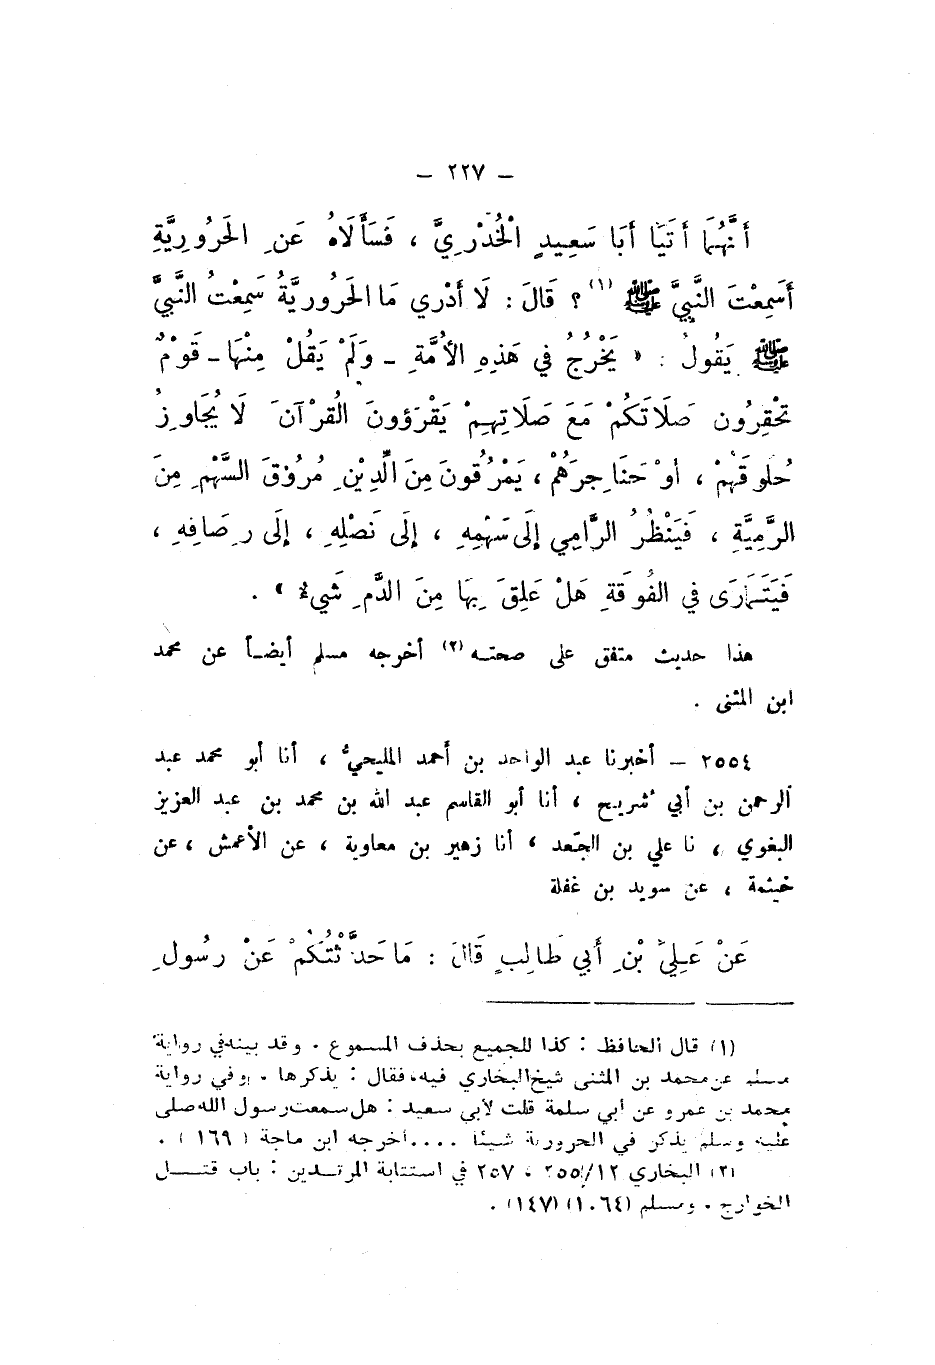 – ٢٢٧ –
أَنَّهُمَا أَتَيَا أَبَا سَعِيدٍ الْخُدْرِيَّ ، فَسَأَلَاهُ عَنِ الْحَرُورِيَّةِ
أَسَمِعْتَ النَّبِيَّ ﷺ (١) ؟ قَالَ : لَا أَدْرِي مَا الْحَرُورِيَّةُ سَمِعْتُ النَّبِيَّ
ﷺ يَقُولُ : « يَخْرُجُ فِي هَذِهِ الأُمَّةِ – وَلَمْ يَقُلْ مِنْهَا – قَوْمٌ
تَحْقِرُونَ صَلَاتَكُمْ مَعَ صَلَاتِهِمْ يَقْرَؤونَ الْقُرْآنَ لَا يُجَاوِزُ
حُلُوقَهُمْ ، أَوْ حَنَاجِرَهُمْ ، يَمْرُقُونَ مِنَ الدِّيْنِ مُرُوْقَ السَّهْمِ مِنَ
الرَّمِيَّةِ ، فَيَنْظُرُ الرَّامِي إِلَى سَهْمِهِ ، إِلَى نَصْلِهِ ، إِلَى رِصَافِهِ ،
فَيَتَمَارَى فِي الفُوقَةِ هَلْ عَلِقَ بِهَا مِنَ الدَّمِ شَيءٌ » .
هذا حديث متفق على صحته (٢) أخرجه مسلم أيضاً عن محمد
ابن المثنى .
٢٥٥٤ – أخبرنا عبد الواحد بن أحمد المليحيُّ ، أنا أبو محمد عبد
الرحمن بن أبي شريح ، أنا أبو القاسم عبد الله بن محمد بن عبد العزيز
البغوي ، نا علي بن الجَعد ، أنا زهير بن معاوية ، عن الأعمش ، عن
خيثمة ، عن سويد بن غفلة
عَنْ عَلِيِّ بْنِ أَبِي طَالِبٍ قَالَ : مَا حَدَّثْتُكُمْ عَنْ رَسُولِ
(١) قال الحافظ : كذا للجميع بحذف المسموع . وقد بينه في رواية
مسلم عن محمد بن المثنى شيخ البخاري فيه ، فقال : يذكرها . وفي رواية
محمد بن عمرو عن أبي سلمة قلت لأبي سعيد : هل سمعت رسول الله صلى
عليه وسلم يذكر في الحرورية شيئاً .... أخرجه ابن ماجة ( ١٦٩ ) .
(٢) البخاري ٢٥٥/١٢ ، ٢٥٧ في استتابة المرتدين : باب قتل
الخوارج . ومسلم (١٠٦٤) (١٤٧) .